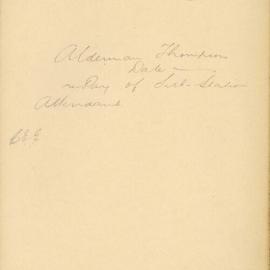 Alderman Thompson
Date —
re Pay of Sub-Station
Attendant